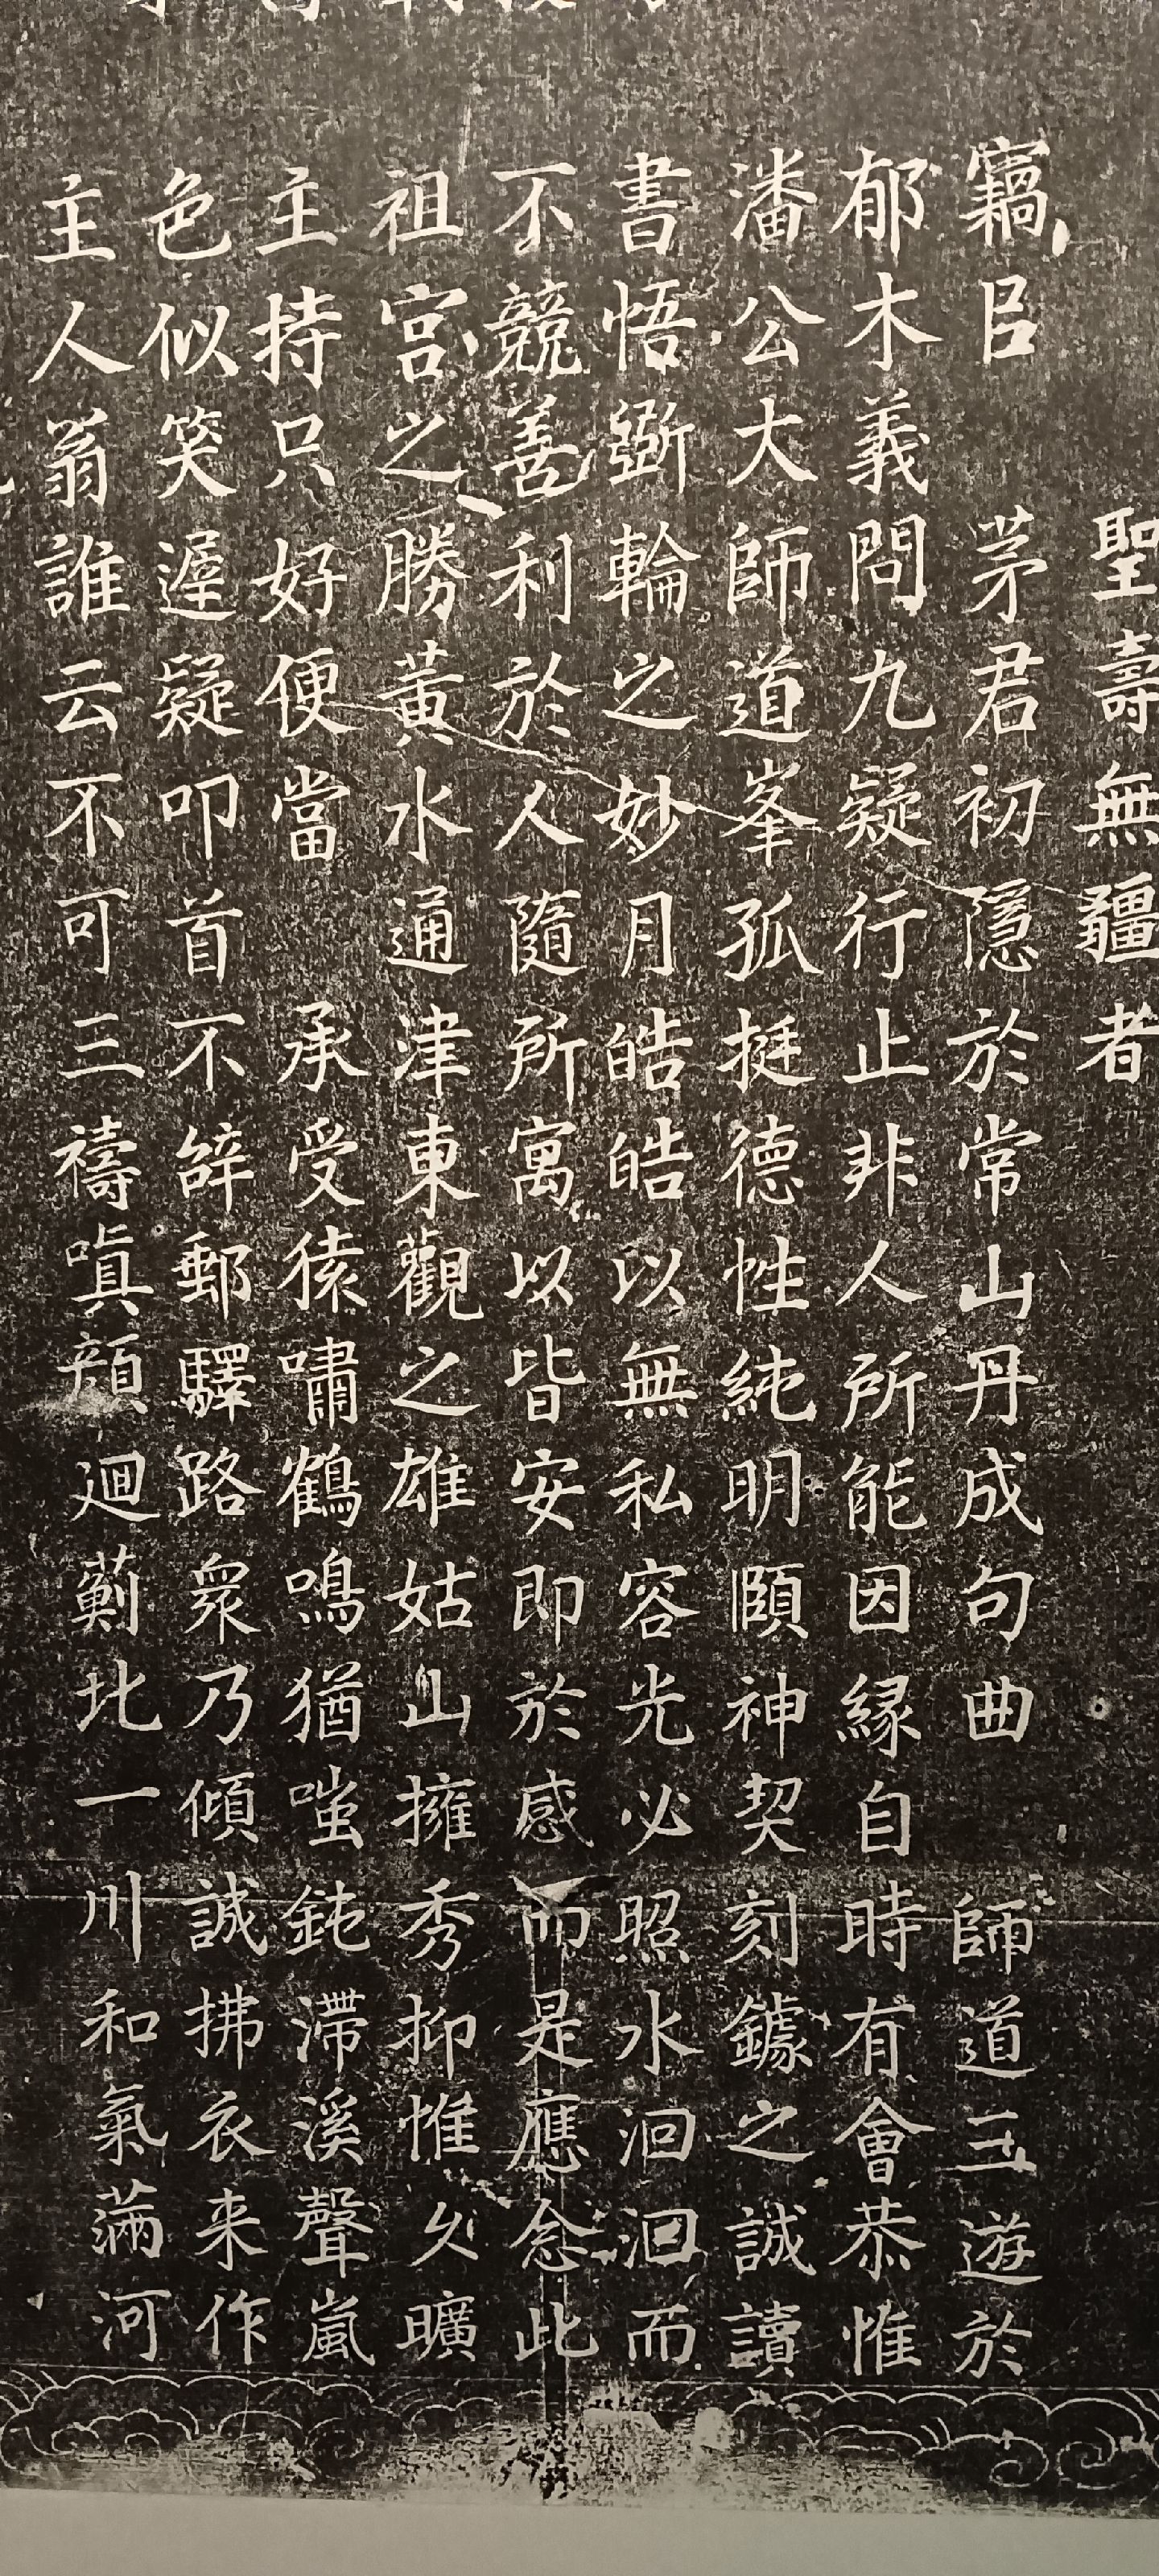 聖壽無疆者
竊㠯茅君初隱於常山丹成句曲師道王遊於
郁木義問九疑行止非人所能因緣自時有會恭惟
潘公大師道峯孤挺德性純明頤神契刻鐻之誠讀
書悟斲輪之妙月皓皓以無私容光必照水洄洄而
不競善利於人隨所寓以皆安即於感而是應念此
祖宮之勝黃水通津東觀之雄姑山擁秀抑惟久曠
主持只好便當承受猿嘯鶴鳴猶嗤鈍滯溪聲嵐
色似笑遲疑叩首不辭郵驛路衆乃傾誠拂衣来作
主人翁誰云不可三禱嗔顏迴薊北一川和氣滿河